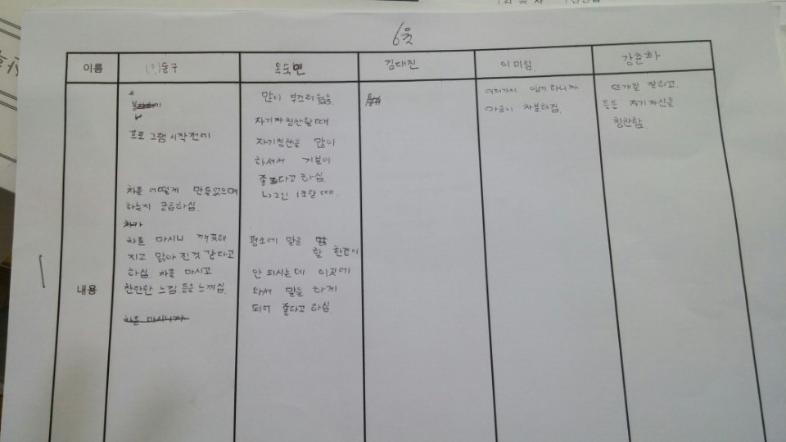 6월
이름
동구
옥숙연
김대진
이미림
강춘화
내용
프로그램 시작전에
차를 어떻게 만들었으며
하는지 궁금하심.
차가
차를 마시니 깨끗해
지고 맑아 진것 같다고
하심. 차를 마시고
편안한 느낌 등을 느끼심.
차를 마시니까
많이 부끄러웠음.
자기자칭찬할때
자기칭찬을 많이
하셔서 기분이
좋다고 하심.
평소에 말을
할 환경이
안 되시는데 이곳에
와서 말을 하게
되어 좋다고 하심
여러가지 얘기하니까
마음이 차분해짐.
뜨개질 잘하고.
등등 자기자신을
칭찬함